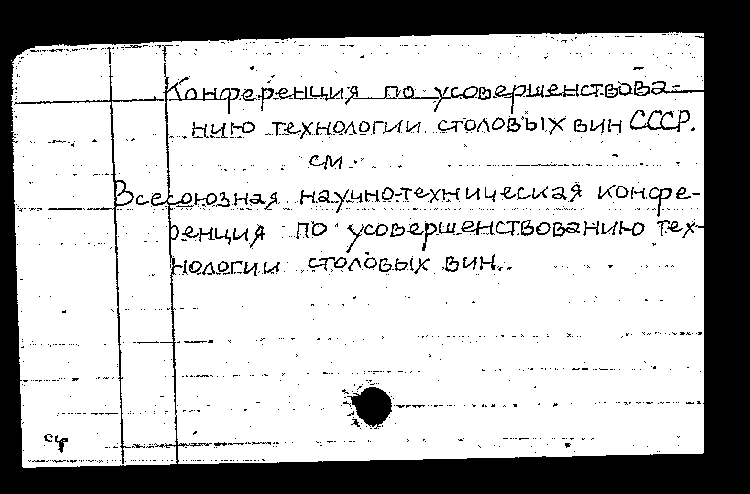 Конференция по усовершенствова-
нию технологии столовых вин СССР.
см.
Всесоюзная научно-техническая конфе-
ренция по усовершенствованию тех-
нологии столовых вин.